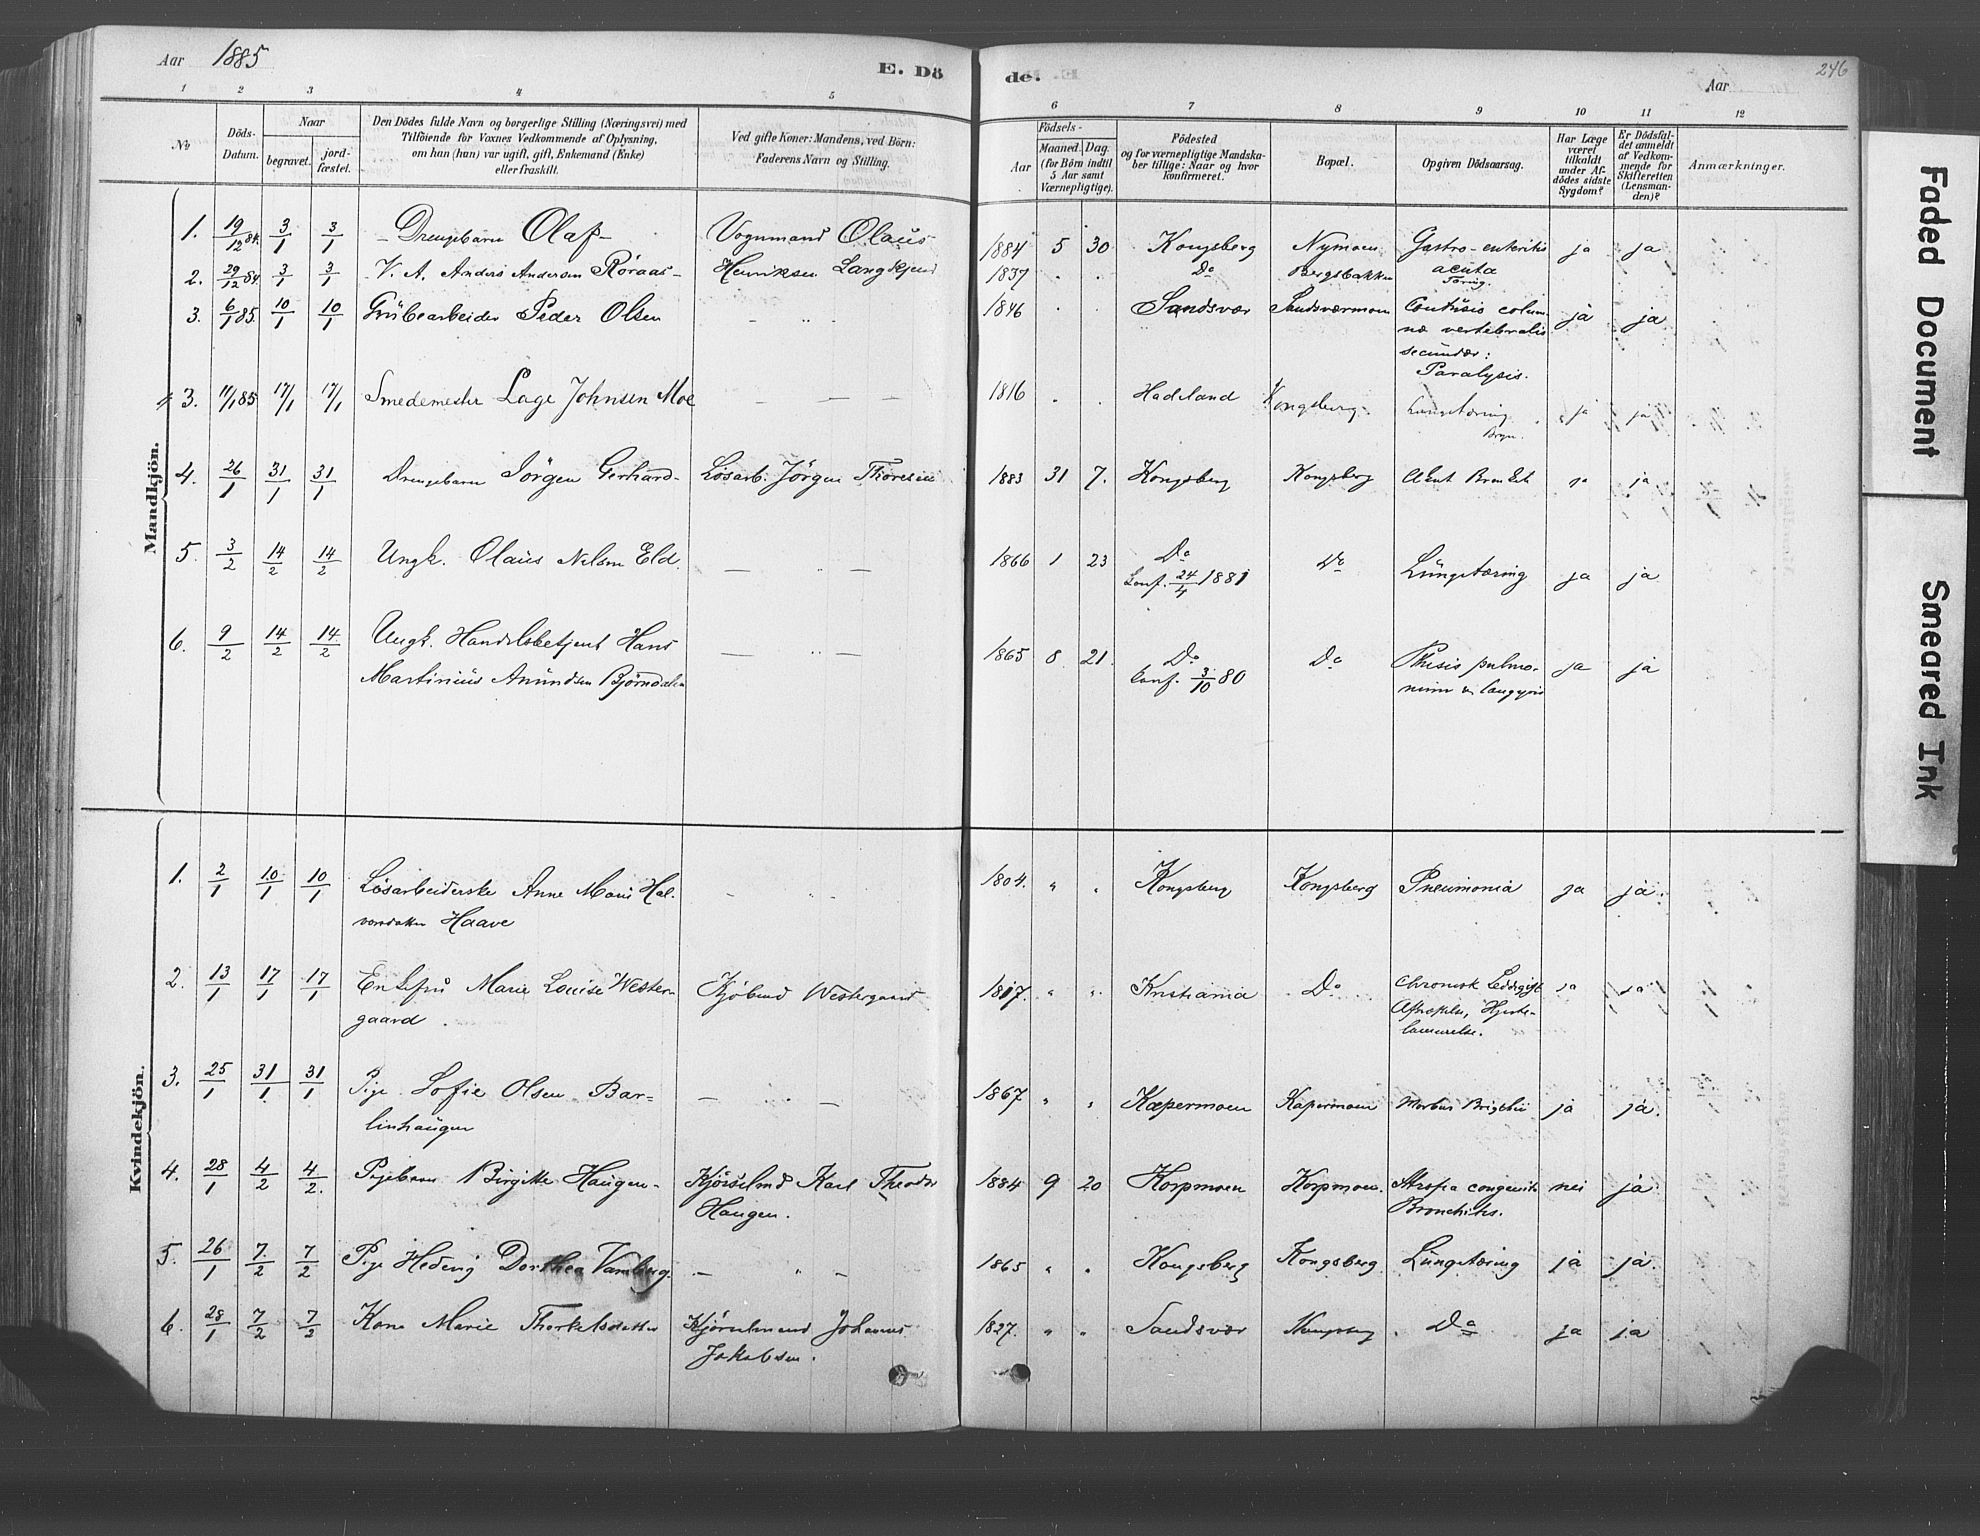 Aar 1885
E. Dö
de.
Aar
246
1 2 3 4 5 6 7 8 9 10 11 12
No
Döds-Datum.
Naar
begravet.
jord-fæstet.
Den Dödes fulde Navn og borgerlige Stilling (Næringsvei) med
Tilföiende for Voxnes Vedkommende af Oplysning,
om han (hun) var ugift, gift, Enkemand (Enke)
eller fraskilt.
Ved gifte Koner: Mandens, ved Börn:
Faderens Navn og Stilling.
Födsels-
Aar
Maaned. Dag.
(for Börn indtil
5 Aar samt
Værnepligtige).
Födested
og for værnepligtige Mandska-
ber tillige: Naar og hvor
konfirmeret.
Bopæl.
Opgiven Dödsaarsag.
Har Læge
været
tilkaldt
under Af-
dödes sidste
Sygdom?
Er Dödsfal-
det anmeldt
af Vedkom-
mende for
Skifteretten
(Lensman-
den)?
Anmærkninger.
Mandkjön.
1. 19/12 84. 3/1 3/1 Drengebarn Olaf Vognmand Olaus 1884 5 30 Kongsberg Nymoen Gastro-enteritis ja ja
acuta
2. 29/12 84. 3/1 3/1 V. A. Anders Andersen Röraas Henriksen Langkjend 1837 Do Bergsbakken Tæring.
3. 6/1 85. 10/1 10/1 Grübearbeider Peder Olsen 1846 Sandsvær Sandsværmoen Contusio colum-
næ vertebralis ja ja
secundær:
Paralysis.
3. 11/1 85 17/1 17/1 Smedemester Lage Johnsen Moe 1816 Hadeland Kongsberg Lungetæring ja ja
4. 26/1 31/1 31/1 Drengebarn Jörgen Gerhard Lösarb. Jörgen Thoresen 1883 31 7. Kongsberg Kongsberg Akut Bronkit ja ja
5. 3/2 14/2 14/2 Ungk. Olaus Nilsen Eld. 1866 1 23 Do Do Lüngetæring ja ja
Conf. 24/4 1881
6. 9/2 14/2 14/2 Ungk. Handelsbetjent Hans 1865 8 21. Do Do Phisis pulmo- ja ja
Martinius Amundsen Björndalen conf. 3/10 80
Kvindekjön.
1. 2/1 10/1 10/1 Lösarbeiderske Anne Marie Hal- 1804. " " Kongsberg Kongsberg Pneumonia ja ja.
vorsdatter Haave
2. 13/1 17/1 17/1 Enkefru Marie Louise Wester- Kjöbmd Westergaard 1817. " " Kristiania Do Chronisk Leddegigt ja ja
gaard. Hjerte-
lammelse.
3. 25/1 31/1 31/1 Pige Sofie Olsen Bar= 1867. " " Kapermoen Kapermoen Morbus Brigthii ja ja.
linhaugen
4. 28/1 4/2 4/2. Pigebarn Birgitte Haugen Kjörselmd Karl Theodor 1884 9 20 Korpmoen Korpmoen. Atrofia congenita nei ja
Haugen. Bronchitis.
5. 26/1 7/2 7/2 Pige Hedevig Dorthea Vamberg. 1865 " " Kongsberg Kongsberg Lüngetæring ja ja.
6. 28/1 7/2 7/2 Kone Marie Thorkelsdatter Kjörselmand Johannes 1827. " " Sandsvær Kongsberg Do ja ja
Jakobsen.
Faded Document
Smeared Ink